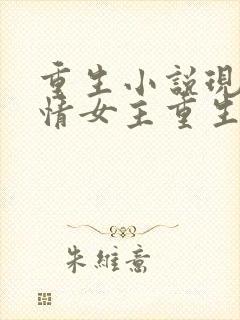 重生小說現
情女主重生
朱維喬